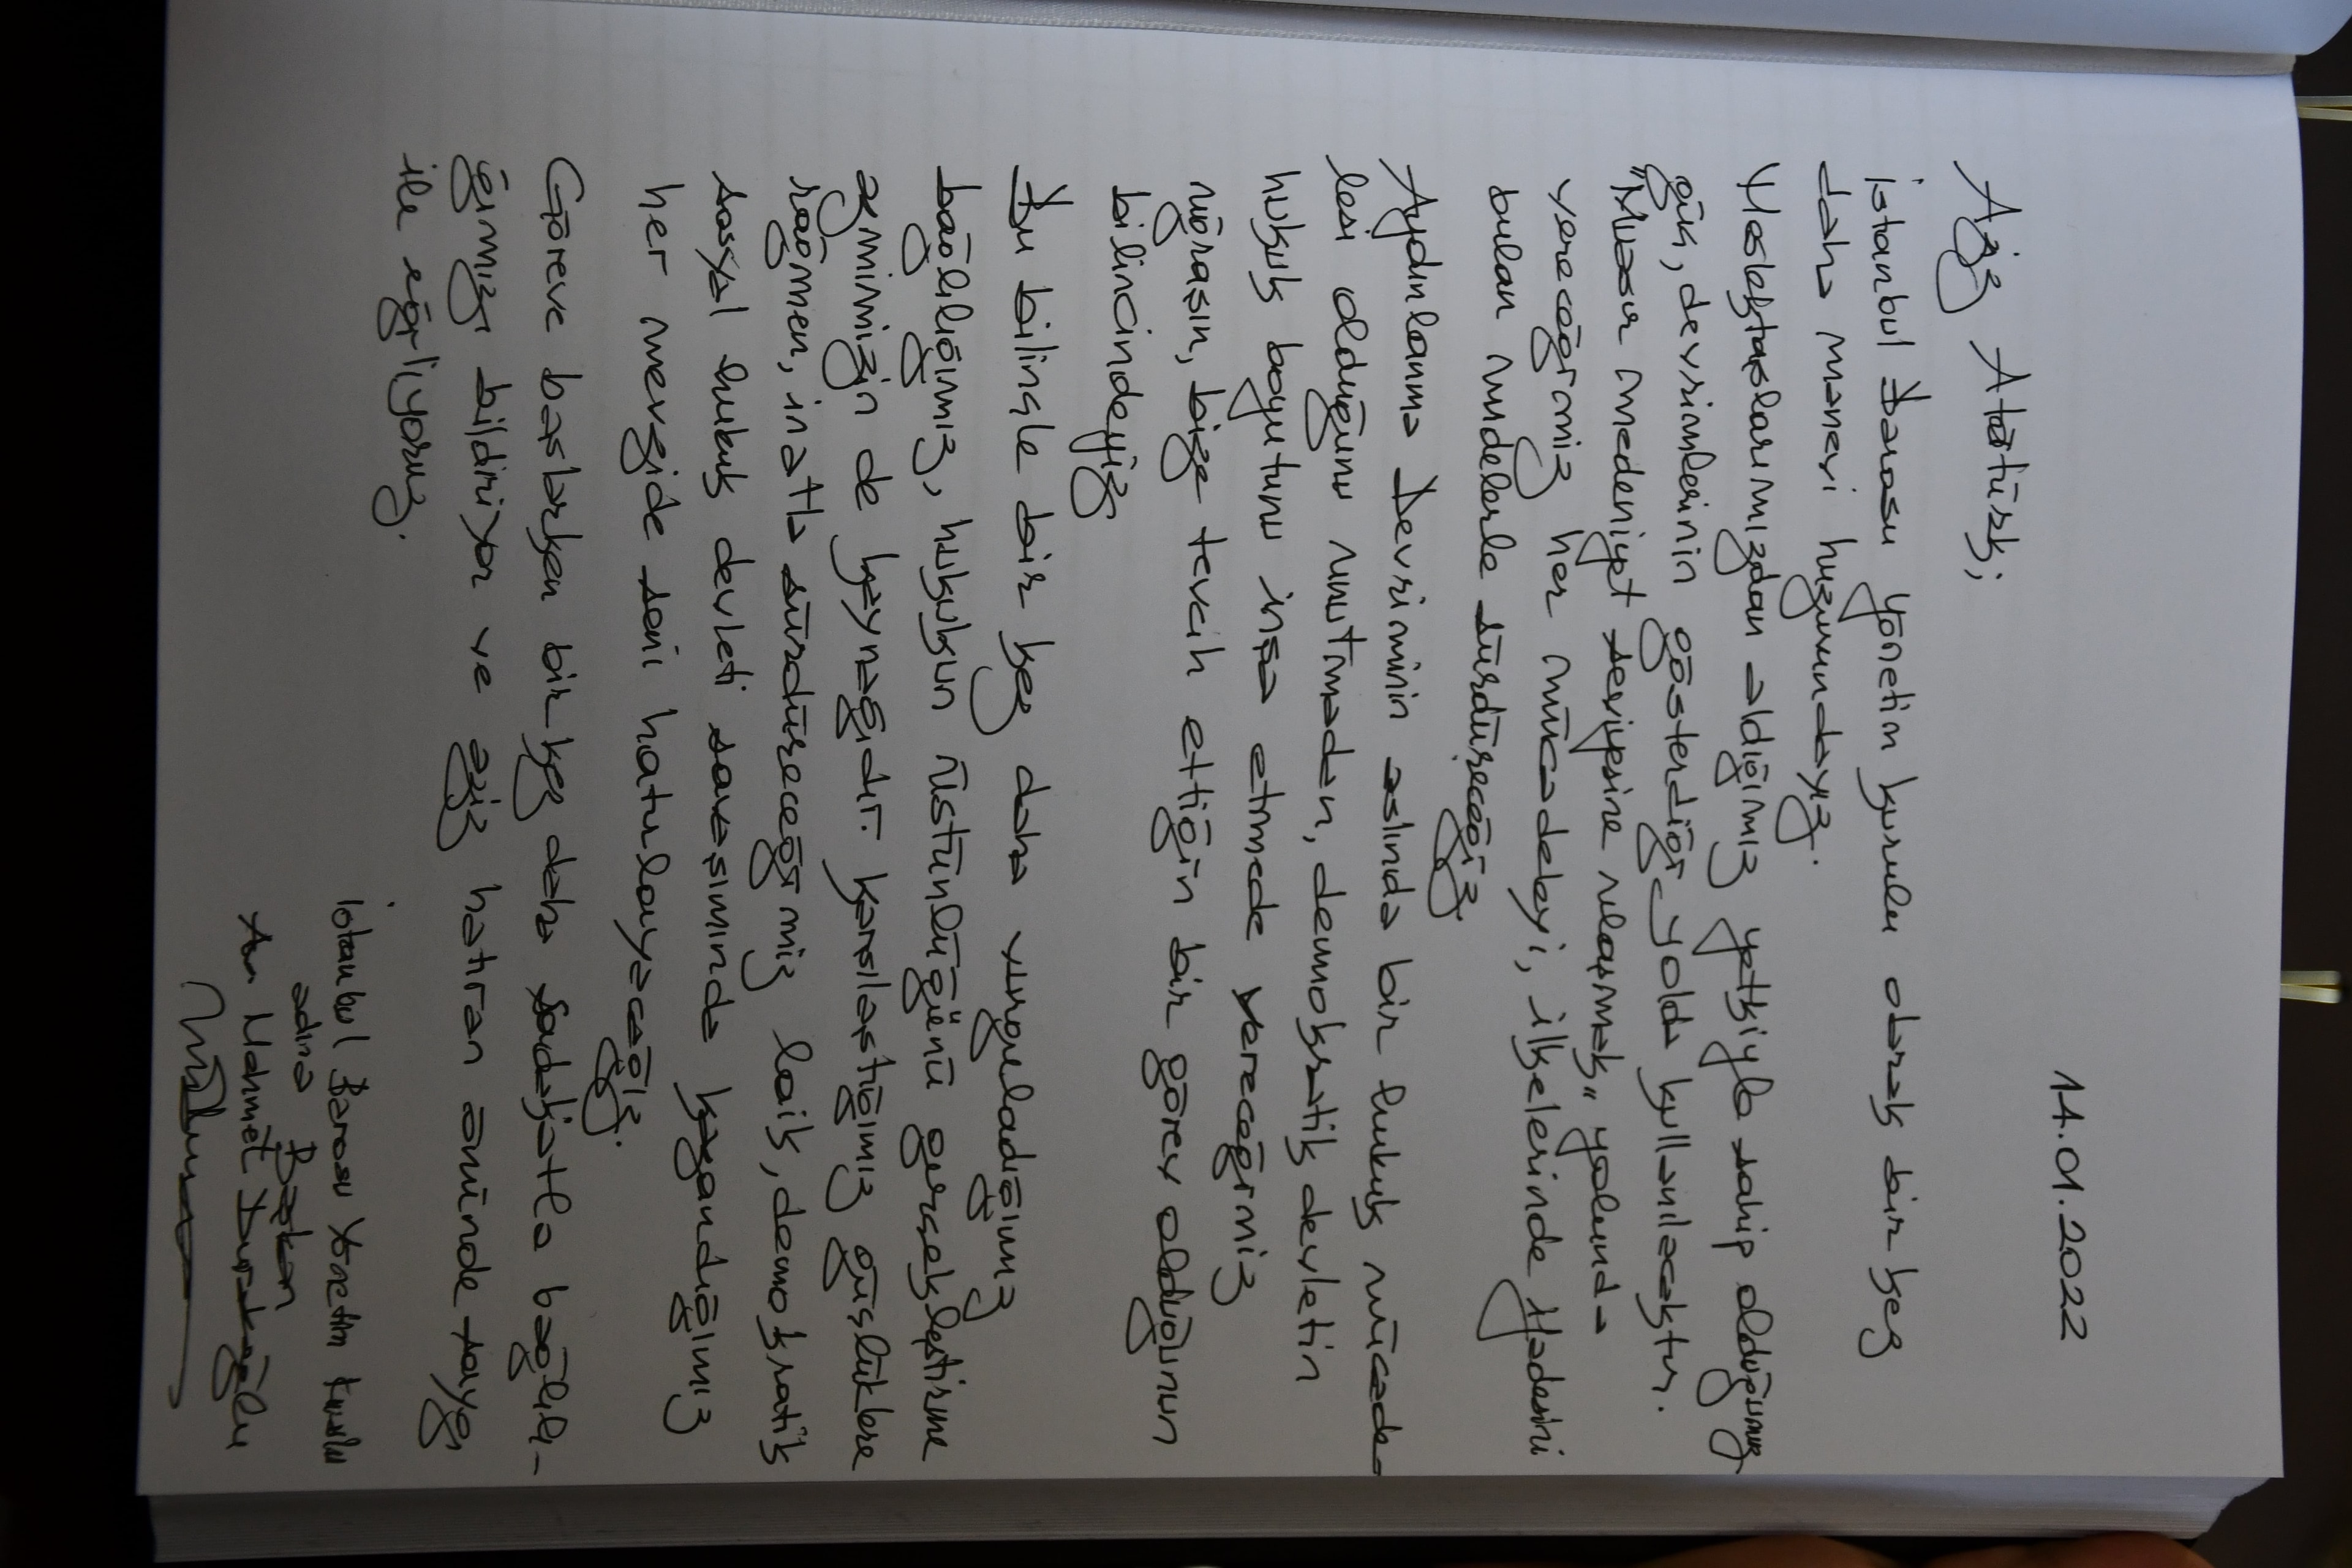 11.01.2022
Aziz Atatürk;
İstanbul Barosu yönetim kurulu olarak bir kez
daha manevi huzurundayız.
Meslektaşlarımızdan aldığımız yetkiyle sahip olduğumuz
güç, devrimlerinin gösterdiği yolda kullanılacaktır.
"Muasır medeniyet seviyesine ulaşmak" yolunda
vereceğimiz her mücadeleyi, ilkelerinde ifadesini
bulan umdelerle sürdüreceğiz.
Aydınlanma Devriminin aslında bir hukuk mücade-
lesi olduğunu unutmadan, demokratik devletin
hukuk boyutunu inşa etmede vereceğimiz
uğraşın, bize tevcih ettiğin bir görev olduğunun
bilincindeyiz.
Bu bilinçle bir kez daha vurguladığımız
bağlılığımız, hukukun üstünlüğünü gerçekleştirme
azmimizin de kaynağıdır. Karşılaştığımız güçlüklere
rağmen, inatla sürdüreceğimiz laik, demokratik
sosyal hukuk devleti savaşımında kazandığımız
her mevzide seni hatırlayacağız.
Göreve başlarken bir kez daha sadakatle bağlılı-
ğımızı bildiriyor ve aziz hatıran önünde saygı
ile eğiliyoruz.
İstanbul Barosu Yönetim Kurulu
adına
Başkan
Av. Mehmet Durakoğlu